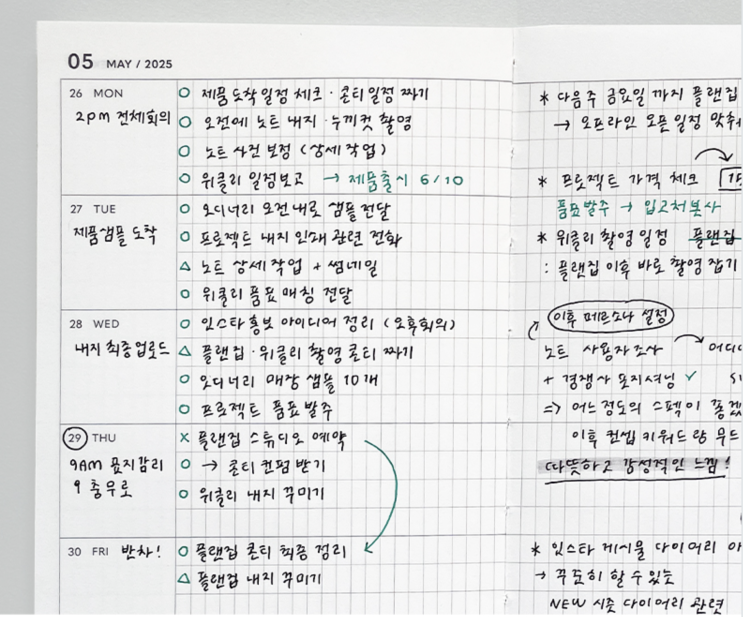 05 MAY / 2025
26 MON
2pm 전체회의
○ 제품도착일정 체크 · 콘티일정 짜기
○ 오전에 노트 내지 · 누끼컷 촬영
○ 노트 사전 보정 (상세작업)
○ 위클리 일정보고 → 제품출시 6/10
27 TUE
제품샘플 도착
○ 오디너리 오전내로 샘플전달
○ 프로젝트 내지 인쇄 관련 전화
△ 노트 상세작업 + 썸네일
○ 위클리 품표 매칭 전달
28 WED
내지 최종업로드
○ 인스타홍보 아이디어 정리 (오후회의)
△ 플랜집 · 위클리 촬영 콘티 짜기
○ 오디너리 매장 샘플 10개
○ 프로젝트 품표 발주
29 THU
9AM 표지감리
충무로
x 플랜집 스튜디오 예약
○ → 콘티 컨펌 받기
○ 위클리 내지 꾸미기
30 FRI 반차!
○ 플랜집 콘티 최종 정리
△ 플랜집 내지 꾸미기
* 다음주 금요일 까지 플랜집
→ 오프라인 오픈일정 맞춰
* 프로젝트 가격 체크
품표발주 → 입고처복사
* 위클리 촬영일정 플랜집
: 플랜집 이후 바로 촬영 잡기
이후 페르소나 설정
노트 사용자조사 →
+ 경쟁사 포지셔닝 ✓
=> 어느정도의 스펙이 좋겠
이후 컨셉 키워드랑 무드
따뜻하고 감성적인 느낌!
* 인스타 게시물 다이어리
→ 꾸준히 할 수 있는
NEW 시즌 다이어리 관련